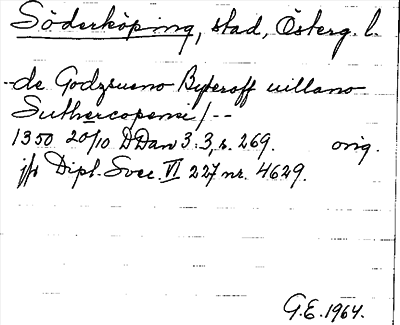 Söderköping, stad, Österg. l.
--de Godzsueno Byteroff uillano
Suthercopensi/--
1350 20/10 DDan 3:3, s. 269. orig.
jfr Dipl. Svec. VI 227 nr. 4629.
G.E. 1964.